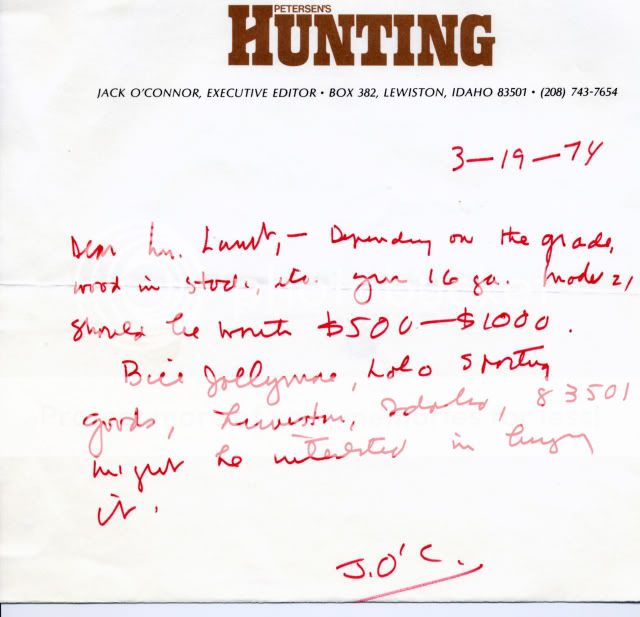 PETERSEN'S
HUNTING
JACK O'CONNOR, EXECUTIVE EDITOR • BOX 382, LEWISTON, IDAHO 83501 • (208) 743-7654
3-19-74
Dear Mr. ,- Depending on the grade,
wood in stock, etc. your 16 ga. Model 21
should be worth $500-$1000.
Bill Jollymore, Lolo Sporting
goods, Lewiston, Idaho, 83501
might be interested in buying
it.
J.O'C.